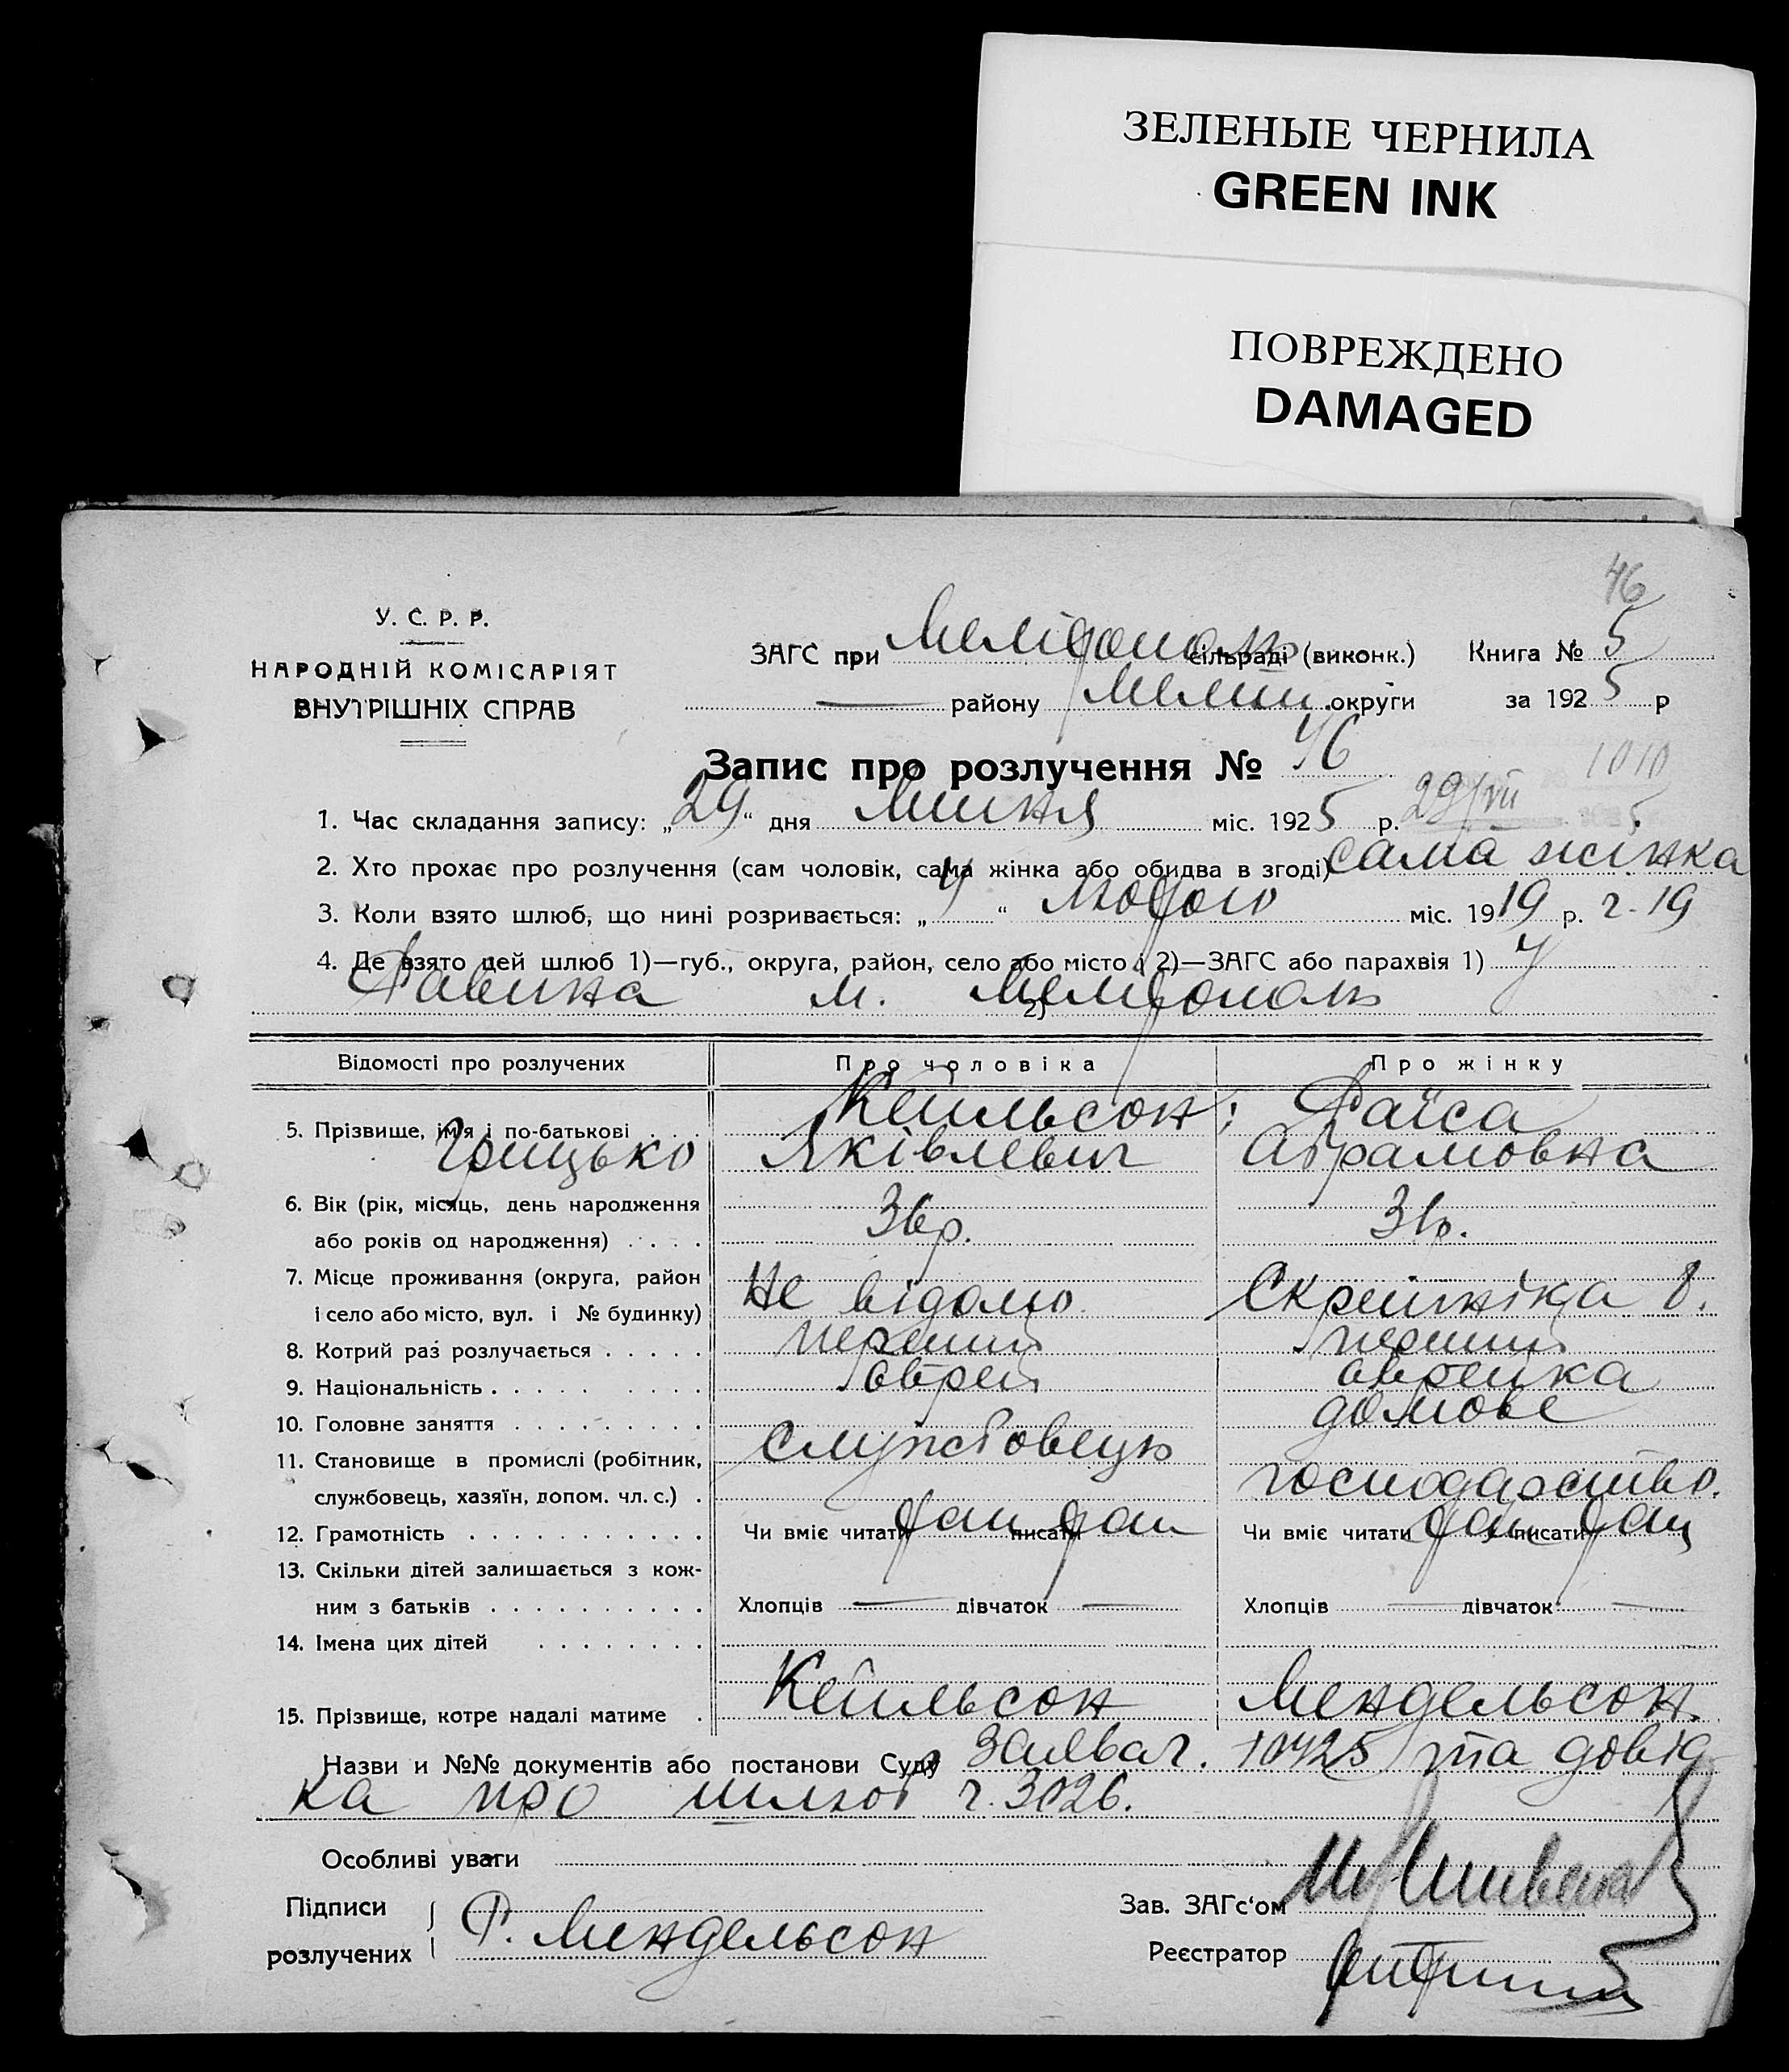 ЗЕЛЕНЫЕ ЧЕРНИЛА
GREEN INK
ПОВРЕЖДЕНО
DAMAGED
46
У. С. Р. Р.
НАРОДНІЙ КОМІСАРІЯТ
ВНУТРІШНІХ СПРАВ
ЗАГС при Мелітополь сільраді (виконк.) Книга № 5
— району Меліт. округи за 1925 р
Запис про розлучення № 46
1010
1. Час складання запису: „29“ дня липня міс. 1925 р. 29/VII 5
2. Хто прохає про розлучення (сам чоловік, сама жінка або обидва в згоді) сама жінка
3. Коли взято шлюб, що нині розривається: „4“ лютого міс. 1919 р. г. 19
4. Де взято цей шлюб 1)—губ., округа, район, село або місто і 2)—ЗАГС або парахвія 1) У
Равина м. 2) Мелітополь
Відомості про розлучених Про чоловіка Про жінку
5. Прізвище, ім'я і по-батькові Кейльсон; Раїса
Грицько Яківлевич Абрамовна
6. Вік (рік, місяць, день народження
або років од народження) . . . . 36р. 31р.
7. Місце проживання (округа, район
і село або місто, вул. і № будинку) Не відомо 8.
8. Котрий раз розлучається . . . . . перший перший
9. Національність . . . . . . . . . . еврей еврейка
10. Головне заняття . . . . . . . . . домове
11. Становище в промислі (робітник, службовець
службовець, хазяїн, допом. чл. с.) . господарство.
12. Грамотність . . . . . . . . . . . Чи вміє читати писати Чи вміє читати писати
13. Скільки дітей залишається з кож-
ним з батьків . . . . . . . . . . Хлопців — дівчаток — Хлопців — дівчаток —
14. Імена цих дітей . . . . . . . .
15. Прізвище, котре надалі матиме . Кейльсон Мендельсон
Назви и №№ документів або постанови Суду 10425 та довід
ка про шлюб г. 3026.
Особливі уваги
Підписи
розлучених Р. Мендельсон
Зав. ЗАГс‘ом
Реєстратор